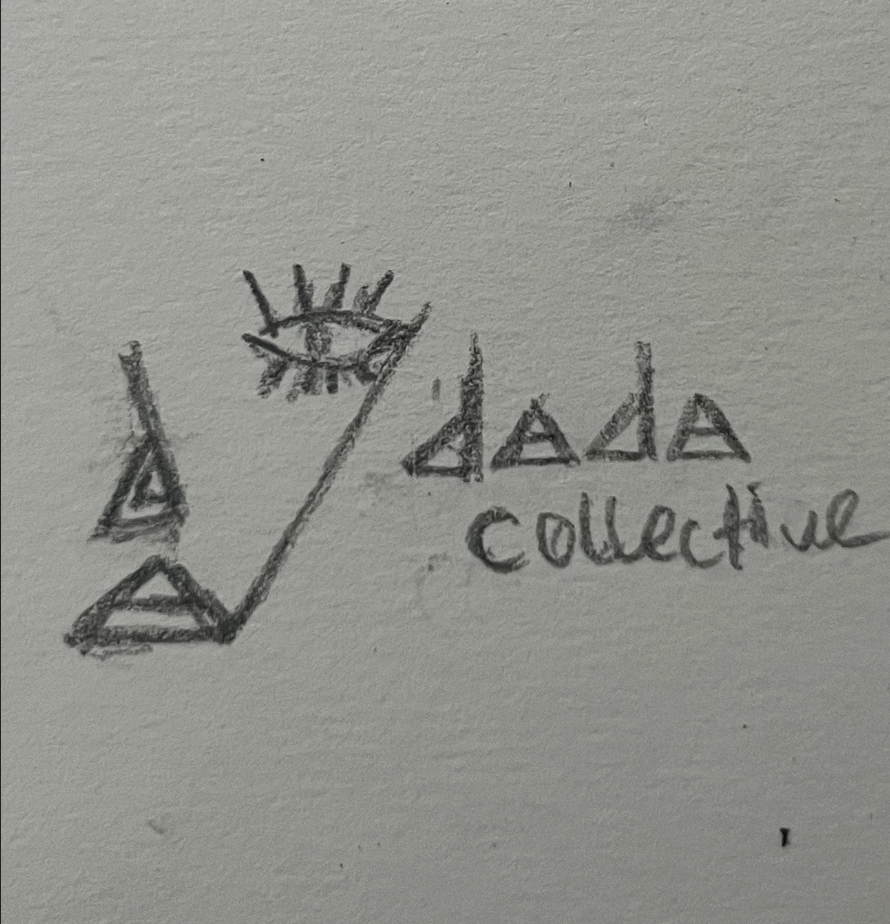 dada
collective